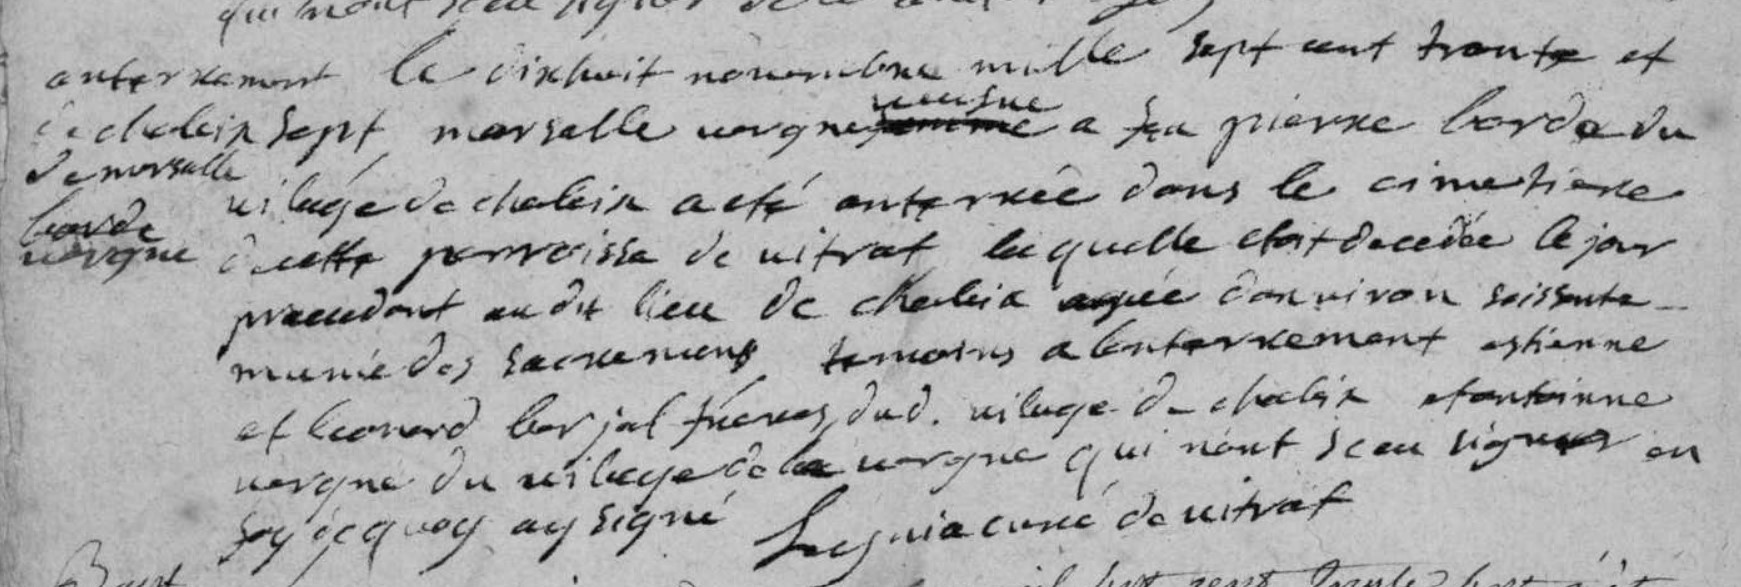 qui n'ont sceu signer de ce
anterrement le dixhuit novembre mille sept cent trante et
de chaleix sept marsalle vergne femme veufve a feu pierre borde du
de marsalle
vilage de chaleix a eté anterrée dans le cimetiere
borde
vergne de cette parroisse de vitrat laquelle etoit decedée le jour
precedant au dit lieu de chaleix agée d'anviron soissante
munie des sacremens temoins a l'anterrement estienne
et leonard barjal freres dud. vilage de chaleix et antoinne
vergne du vilage de la vergne qui n'ont sceu signer en
foy de quoy ay signé curé de vitrat